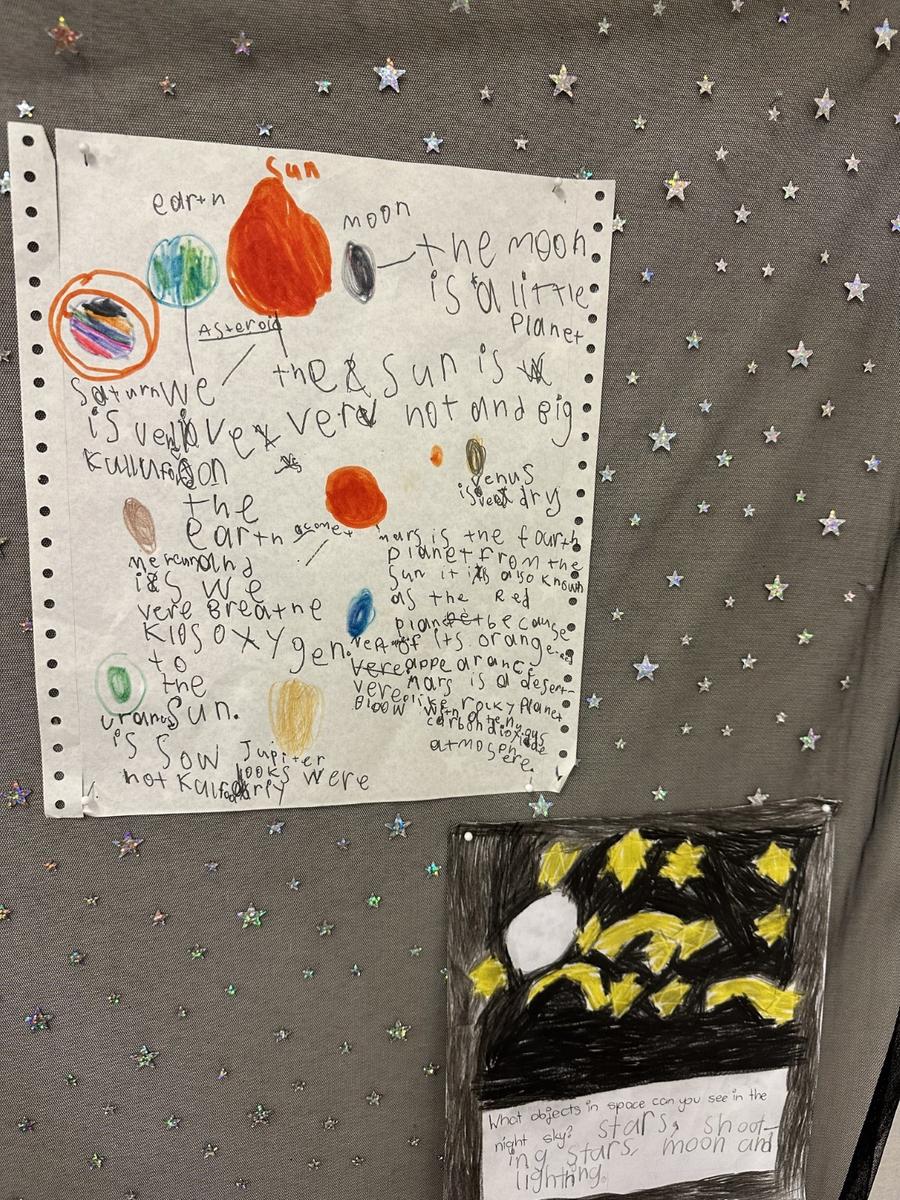 Sun
earth
moon
the moon
is a little
Planet
Asteroid
Saturn
is very
kullurfol
We
love
on
the
earth
and
we
Breathe
oxygen.
the Sun is
very hot and Big
Venus
is veet dry
acomet
mercury
is
vere
klos
to
the
Sun.
mars is the fourth
planet from the
Sun it is also known
as the Red
planet because
of its orange-red
appearance.
Mars is a desert-
like rocky Planet
with a tenu
carbon dioxide
atmosphere.
vere
Bloow
uranus
is Sow
not kalforly
Jupiter
looks were
What objects in space can you see in the
night sky? stars, shoot-
ing stars, moon and
lighthing.